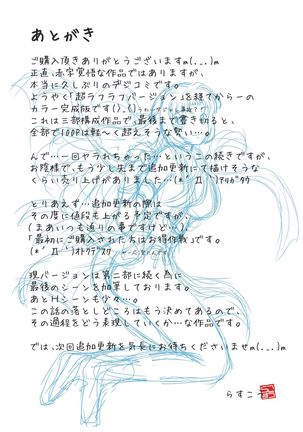 あとがき
ご購入頂きありがとうございますm(...)m
正直、赤字覚悟な作品ではありますが、
本当に久しぶりのデジコミです。
ようやく「超ラフラフバージョン」を経てからーの
カラー完成版です(･_･)
これは三部構成作品で、最後まで書き切ると、
全部で100Pは軽～く超えそうな勢い…。
んで…一回ヤラれちゃった…というこの続きですが、
お陰様で、もう少し先まで追加更新にて描けそうな
くらい売り上げがありました…(*'Д'*)ｱﾘｶﾞﾀｳ
とりあえず…追加更新の際は
その度に値段も上がる予定ですが、
(まあいつも通りの事ですけど…)、
「最初にご購入された方はお得作戦」です。
(*'Д'*)ｵﾄｸﾃﾞｽﾜ
現バージョンは第二部に続く為に
最後のシーンを加筆しております。
あとHシーンも少々…。
この話の落としどころはもう決めてあるので、
その過程をどう表現していくか…な作品です。
では、次回追加更新を気長にお待ちくださいませm(...)m
らすこう